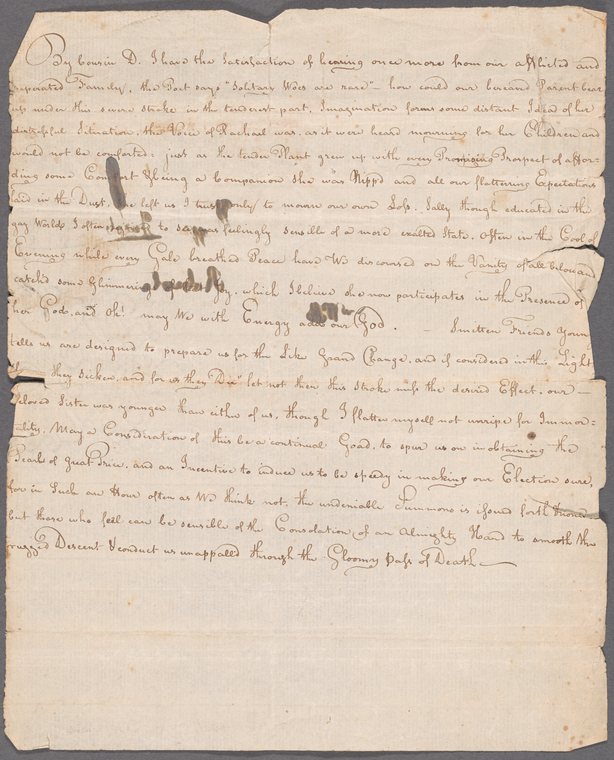 By Cousin D. I have the Satisfaction of hearing once more from our afflicted and
seperated Family, the Poet says "Solitary Woes are rare" – how could our bereaved Parent bear
up under this severe stroke in the tenderest part, Imagination forms some distant Idea of her
distressful Situation, the Voice of Racheal was as it were heard mourning for her Children and
would not be comforted, just as the tender Plant grew up with every Promising Prospect of affor=
ding some Comfort & being a Companion She was Nipp'd and all our flattering Expectations
laid in the Dust. She left us I trust only to mourn our own Loss. Sally though educated in the
gay World I often to say was feelingly sensible of a more exalted State, often in the Cool of
Evening while every Gale breathed Peace have We discoursed on the Vanity of all below and
catched some Glimmering Joy, which I believe she now participates in the Presence of
her God, and Oh! may We with Energy add our God. – Smitten Friends Young
tells us are designed to prepare us for the Like Grand Change, and if considered in this Light
they Sicken, and for us they Die" let not then this Stroke miss the desired Effect, our –
beloved Sister was younger than either of us, though I flatter myself not unripe for Immor=
tality, May a Consideration of this be a continual Goad, to spur us on in obtaining the
Pearl of great Price, and an Incentive to induce us to be speedy in making our Election sure,
for in Such an Hour often as We think not, the undeniable Summons is issued forth &
but those who feel can be sensible of the Consolation of an Almighty Hand to smooth the
rugged Descent & conduct us unappalled through the Gloomy Pass of Death –